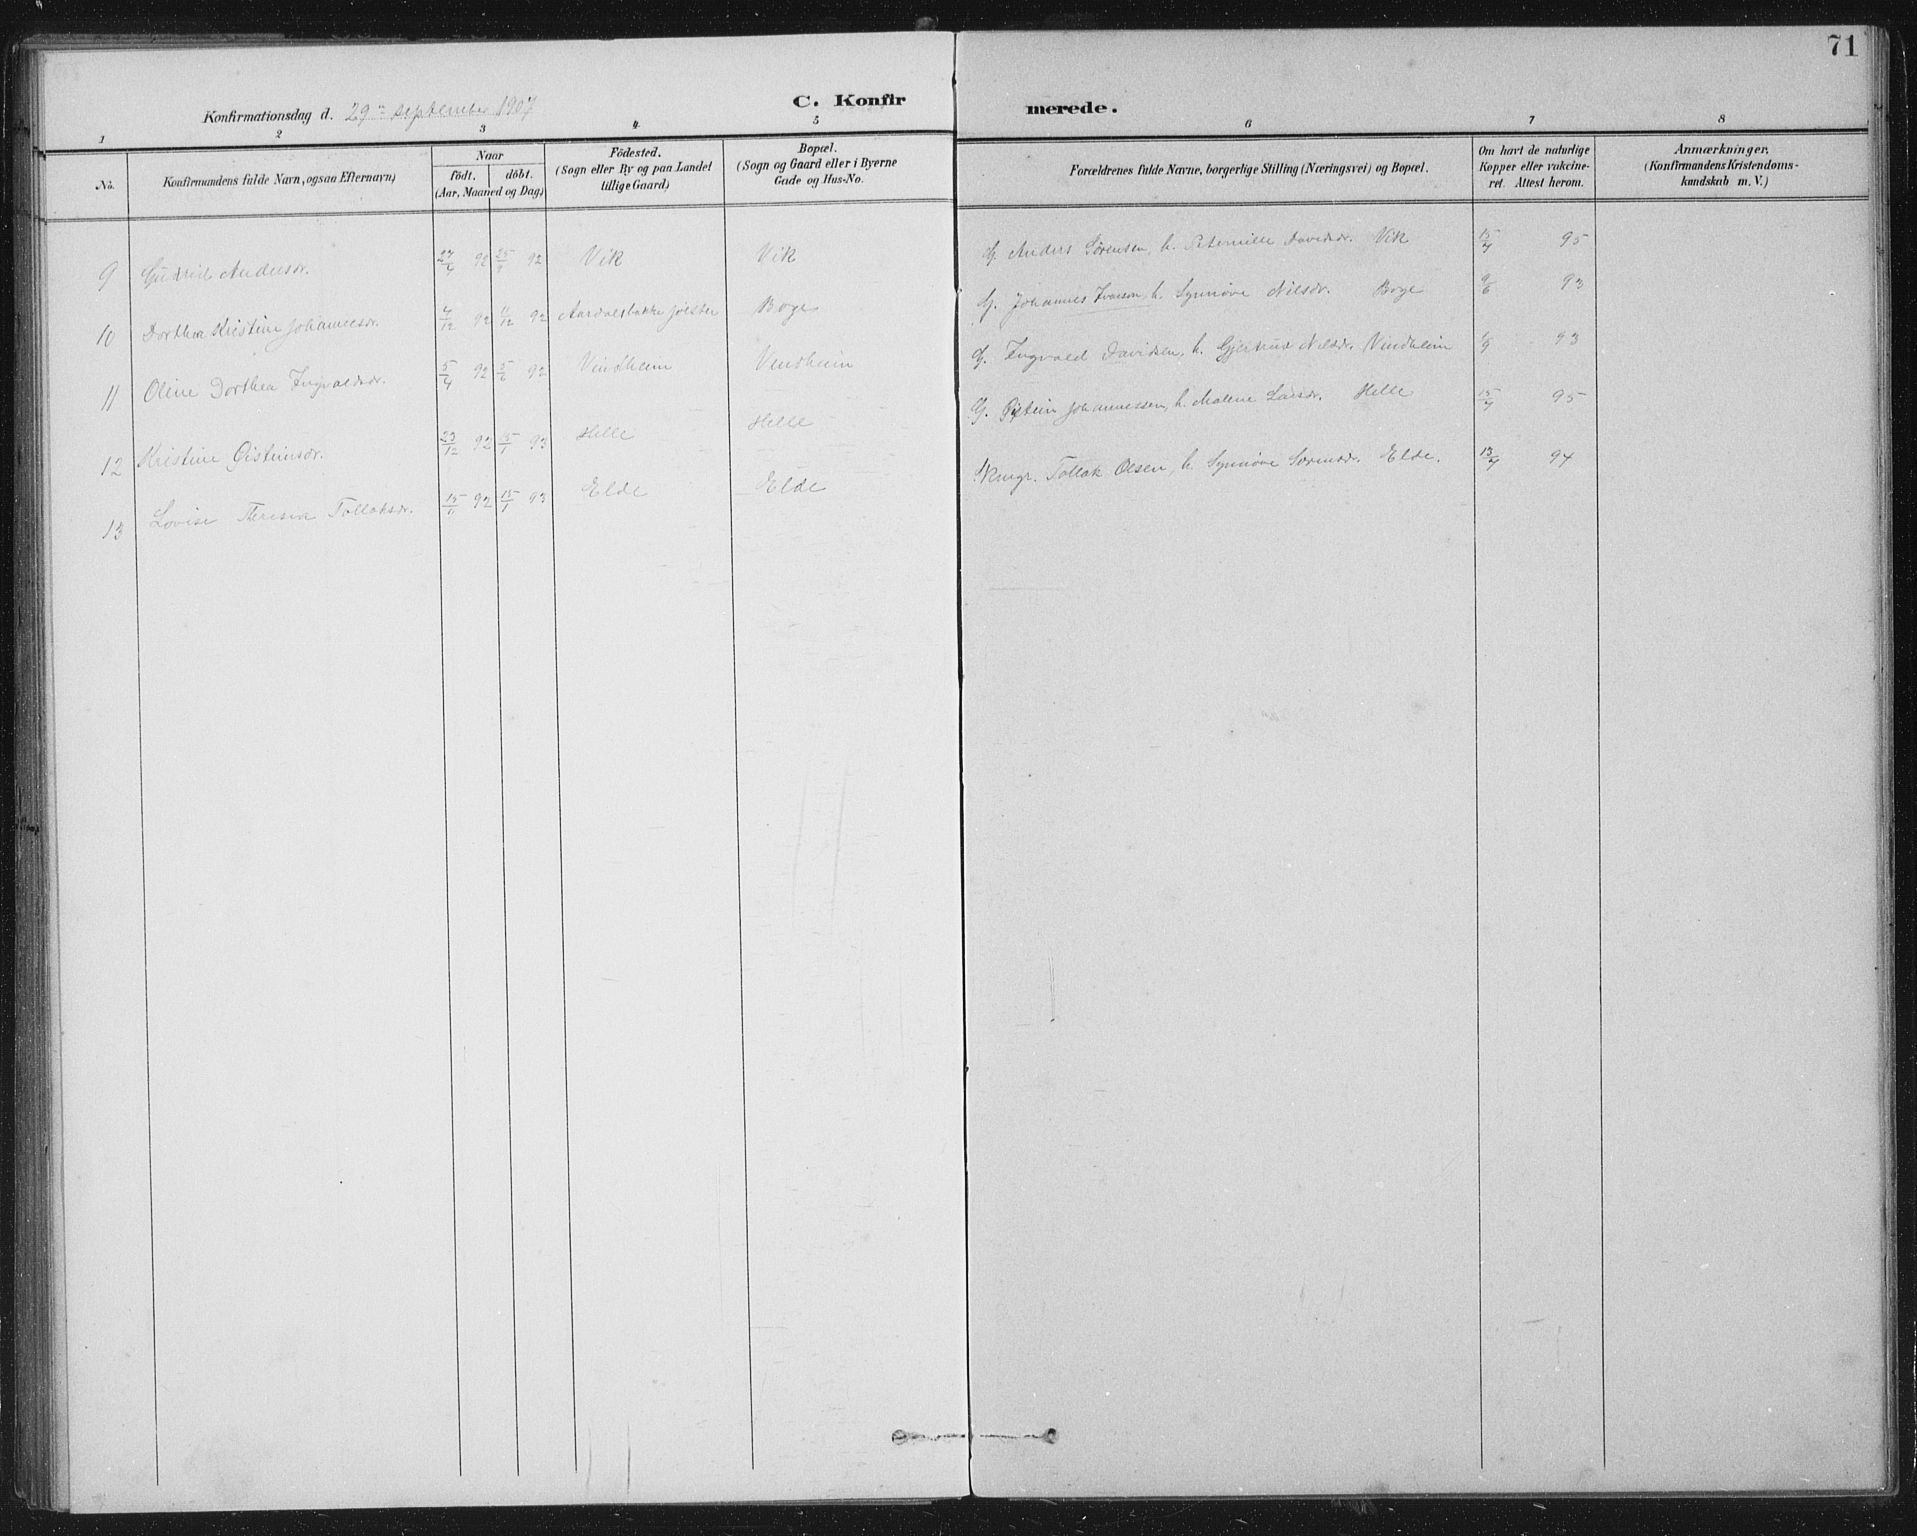 71
C. Konfirmerede.
Konfirmationsdag d. 29 september 1907
1 2 3 4 5 6 7 8
No.
Konfirmandens fulde Navn, ogsaa Efternavn)
Naar
födt. döbt.
(Aar, Maaned og Dag)
Födested.
(Sogn eller By og paa Landet
tillige Gaard)
Bopæl.
(Sogn og Gaard eller i Byerne
Gade og Hus-No.
Forældrenes fulde Navne, borgerlige Stilling (Næringsvei) og Bopæl.
Om havt de naturlige
Kopper eller vakcine-
ret. Attest herom.
Anmærkninger.
(Konfirmandens Kristendoms-
kundskab m. V.)
9 Gudrid Andersdr. 27/4 92 25/ 92 Vik Vik G. Anders Sørensen, h. Peternille Davidsdr. Vik 15/4 95
10 Dorthea Kristine Johannesdr. 4/12 92 11/12 92 Jølster Boge G. Johannes Ivarson, h. Synnøve Nilsdr. Boge 9/6 93
11 Oline Dorthea Ingvaldsdr. 5/4 92 5/6 92 Vindheim Vindheim G. Ingvald Davidsen, h. Gjertrud Nilsdr. Vindheim 6/9 93
12 Kristine Øisteinsdr. 23/12 92 5/1 93 Helle Helle G. Øistein Johannessen, h. Malene Larsdr. Helle 15/4 95
13 Lovise Theresia Tollaksdr. 15/11 92 15/1 93 Elde Elde Tollak Olsen, h. Synnøve Elde. 13/4 94